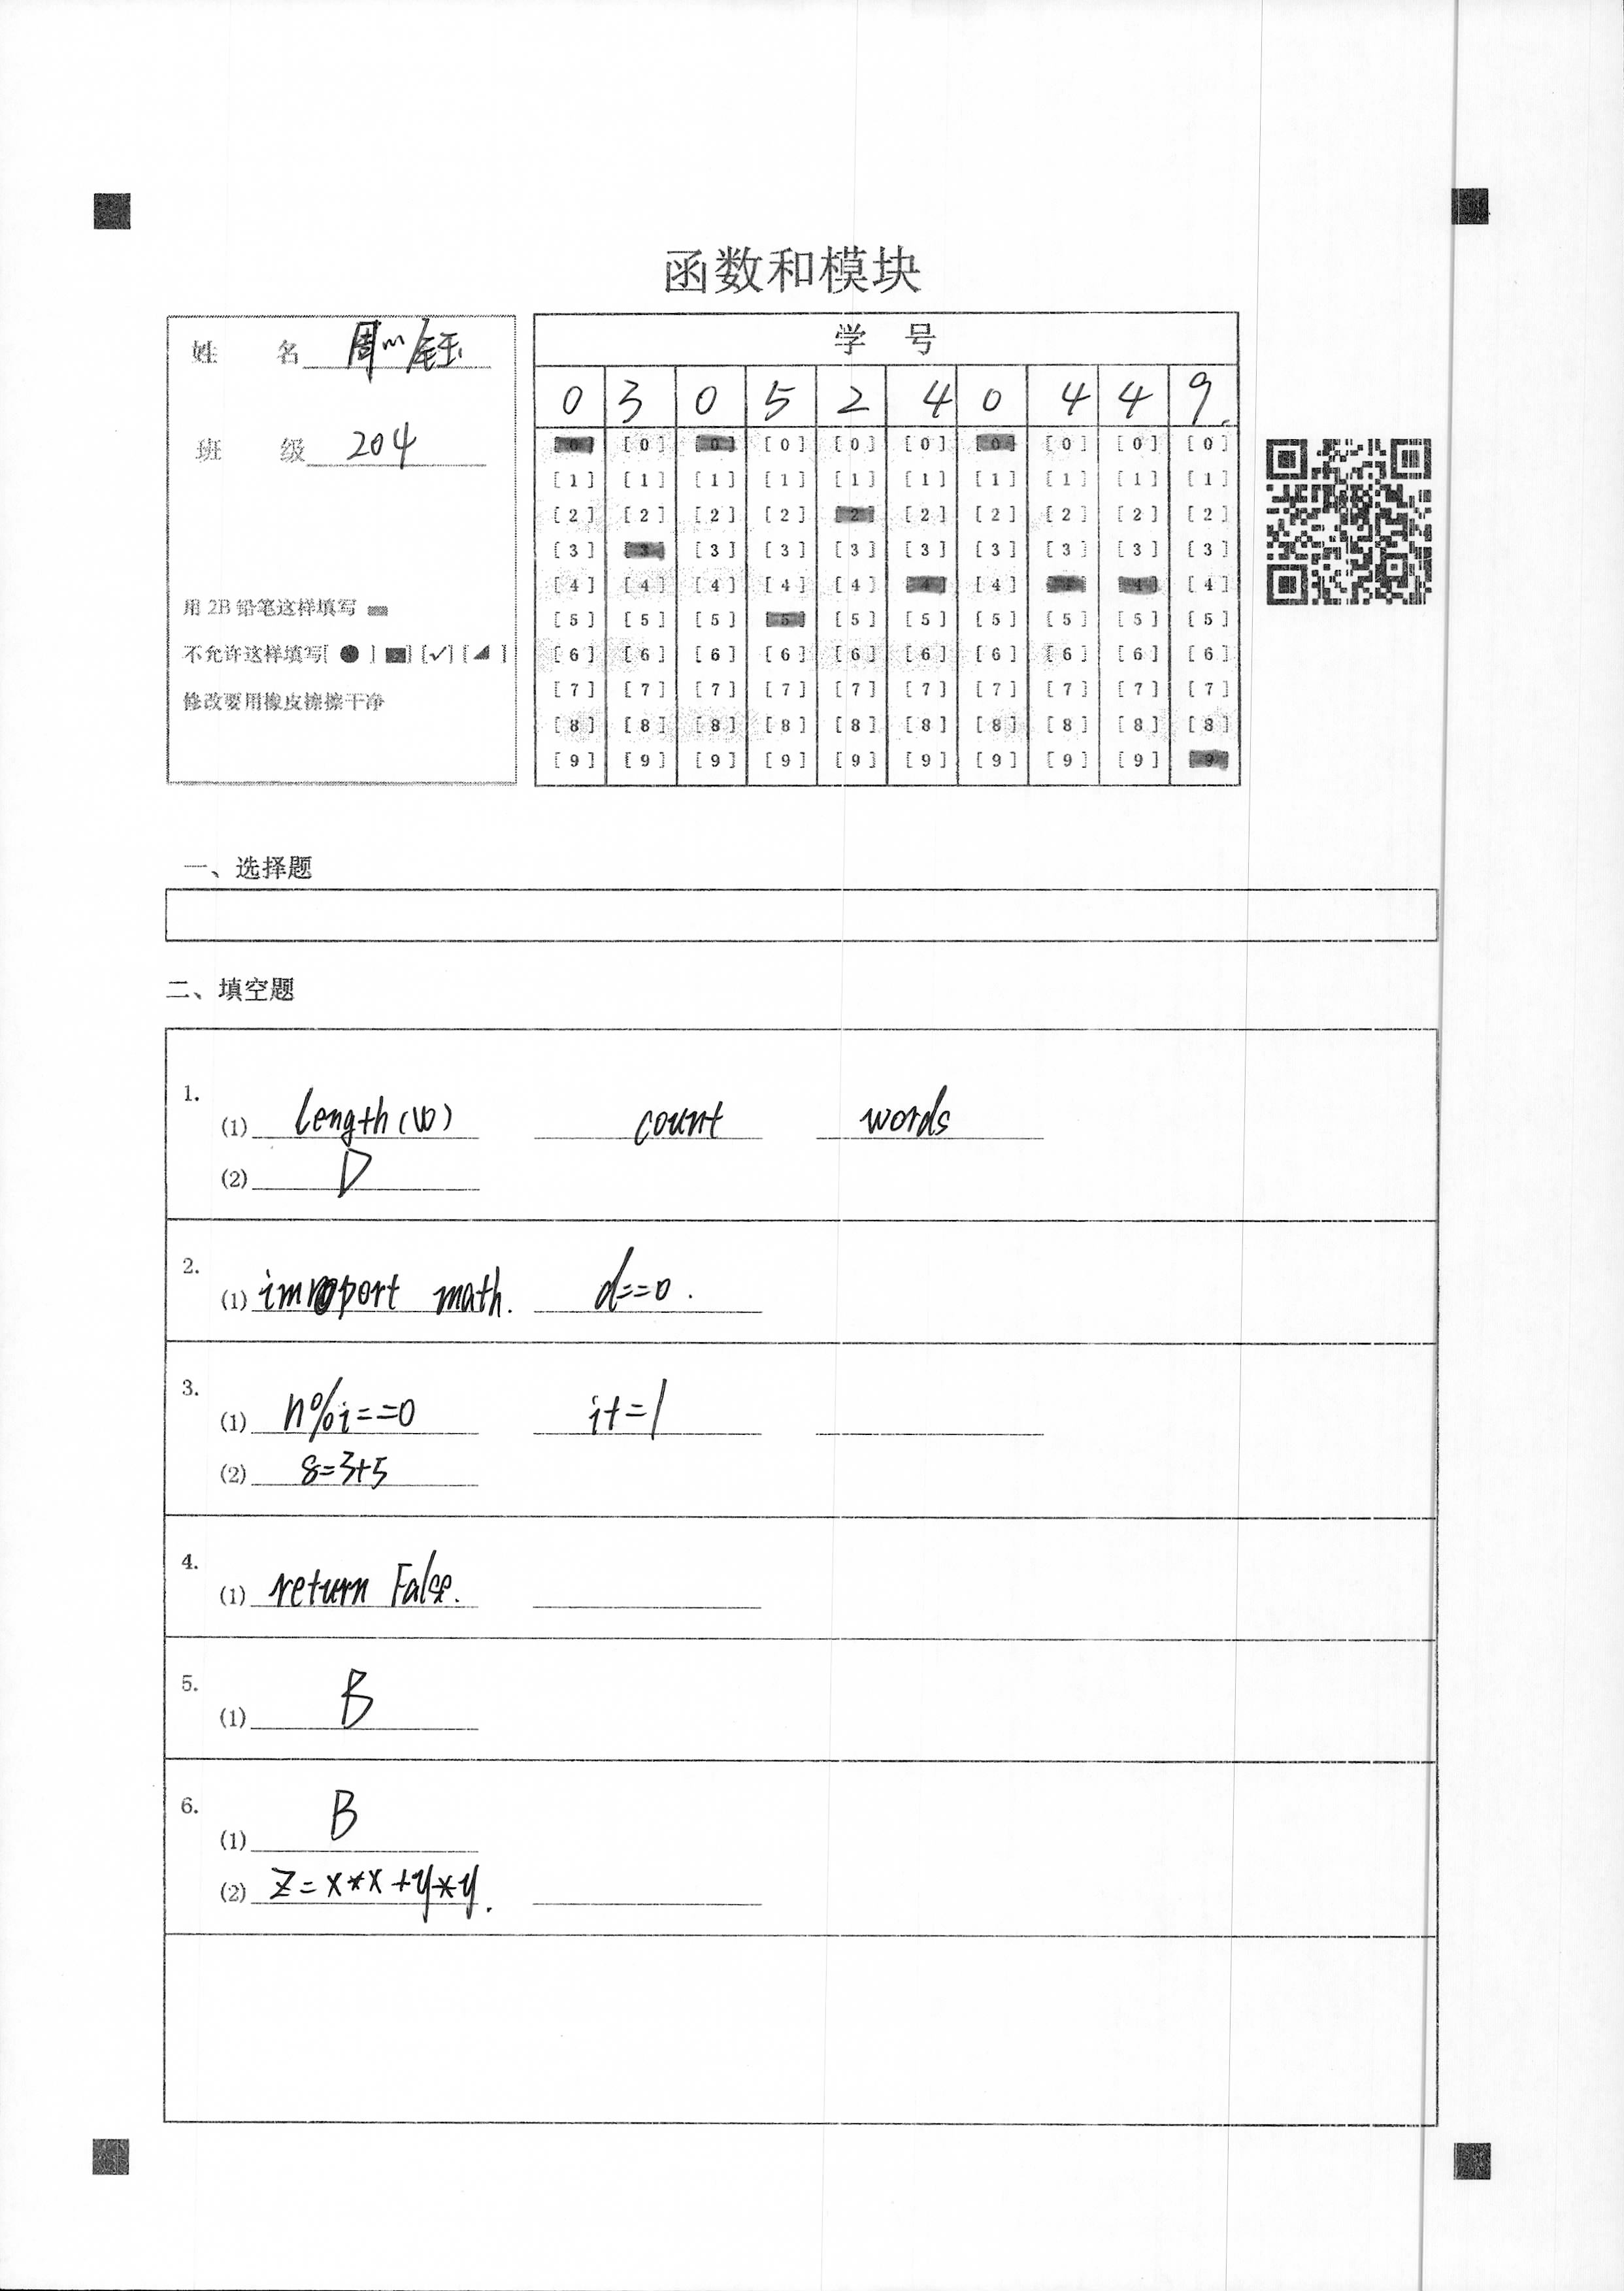 函数和模块
姓 名 周
班 级 204
用 2B 铅笔这样填写
不允许这样填写[ ● ] [■] [✓] [◢ ]
修改要用橡皮擦擦干净
学 号
0 3 0 5 2 4 0 4 4 9.
[0] [0] [0] [0] [0] [0] [0] [0] [0] [0]
[1] [1] [1] [1] [1] [1] [1] [1] [1] [1]
[2] [2] [2] [2] [2] [2] [2] [2] [2] [2]
[3] [3] [3] [3] [3] [3] [3] [3] [3] [3]
[4] [4] [4] [4] [4] [4] [4] [4] [4] [4]
[5] [5] [5] [5] [5] [5] [5] [5] [5] [5]
[6] [6] [6] [6] [6] [6] [6] [6] [6] [6]
[7] [7] [7] [7] [7] [7] [7] [7] [7] [7]
[8] [8] [8] [8] [8] [8] [8] [8] [8] [8]
[9] [9] [9] [9] [9] [9] [9] [9] [9] [9]
一、选择题
二、填空题
1.
(1) length(w) count words
(2) D
2.
(1) import math. d==0.
3.
(1) n%i==0 i+=1
(2) 8=3+5
4.
(1) return False.
5.
(1) B
6.
(1) B
(2) z=x*x+y*y.